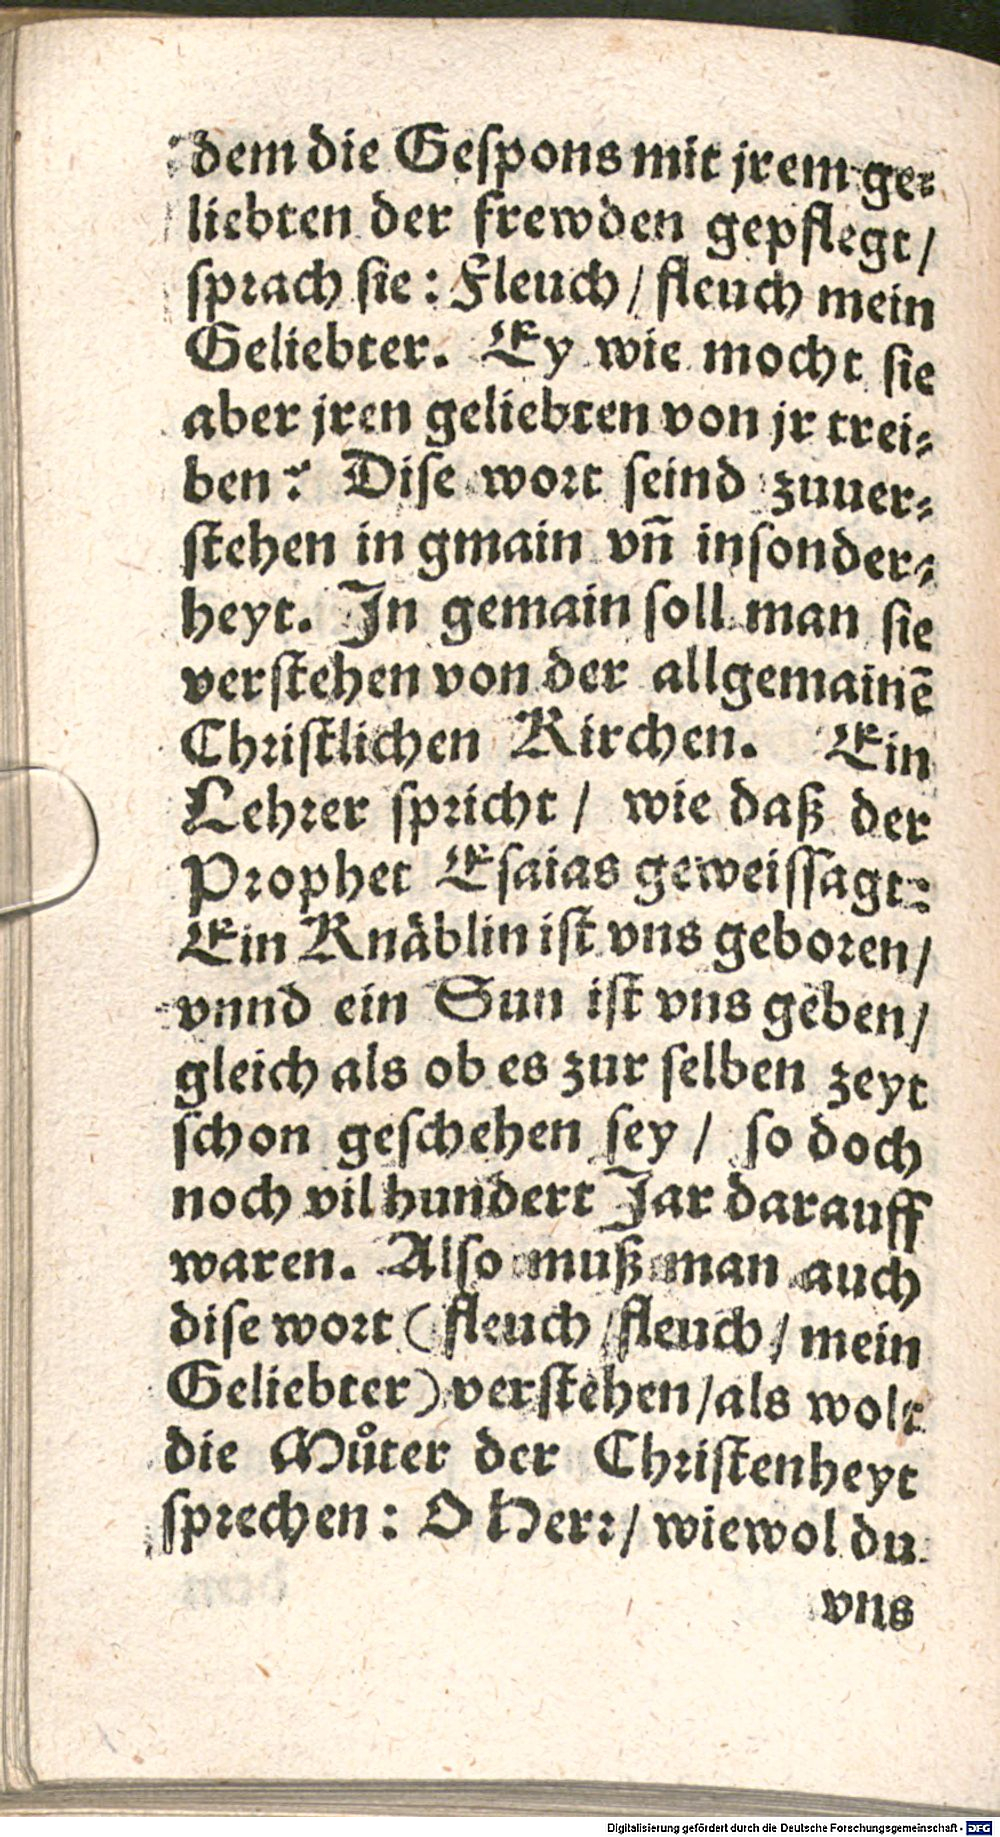 dem die Geſpons mit jrem ge⸗
liebten der frewden gepflegt/
ſprach ſie: Fleuch/ fleuch mein
Geliebter. Ey wie mocht ſie
aber jren geliebten von jr trei⸗
ben? Diſe wort ſeind zuuer⸗
ſtehen in gmain vñ inſonder⸗
heyt. In gemain ſoll man ſie
verſtehen von der allgemainẽ
Chriſtlichen Kirchen. Ein
Lehrer ſpricht/ wie daß der
Prophet Eſaias geweiſſagt:
Ein Knäblin iſt vns geboren/
vnnd ein Sun iſt vns geben/
gleich als ob es zur ſelben zeyt
ſchon geſchehen ſey/ ſo doch
noch vil hundert Jar darauff
waren. Alſo muß man auch
diſe wort (fleuch/ fleuch/ mein
Geliebter) verſtehen/ als wolt
die Můter der Chriſtenheyt
ſprechen: O Herr/ wiewol du
vns
Digitalisierung gefördert durch die Deutsche Forschungsgemeinschaft - DFG